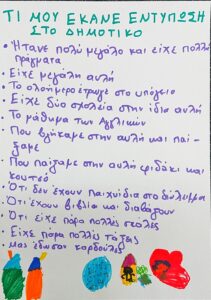 ΤΙ ΜΟΥ ΕΚΑΝΕ ΕΝΤΥΠΩΣΗ
ΣΤΟ ΔΗΜΟΤΙΚΟ
• Ήτανε πολύ μεγάλο και είχε πολλά
πράγματα
• Είχε μεγάλη αυλή
• Το ολοήμερο έτρωγε στο υπόγειο
• Είχε δύο σχολεία στην ίδια αυλή
• Το μάθημα των Αγγλικών
• Που βγήκαμε στην αυλή και παί-
ξαμε
• Που παίξαμε στην αυλή φιδάκι και
κουτσό
• Ότι δεν έχουν παιχνίδια στο διάλειμμα
• Ότι έχουν βιβλία και διαβάζουν
• Ότι είχε πάρα πολλές σκάλες
• Είχε πάρα πολλές τάξεις
• Μας έδωσαν καρδούλες